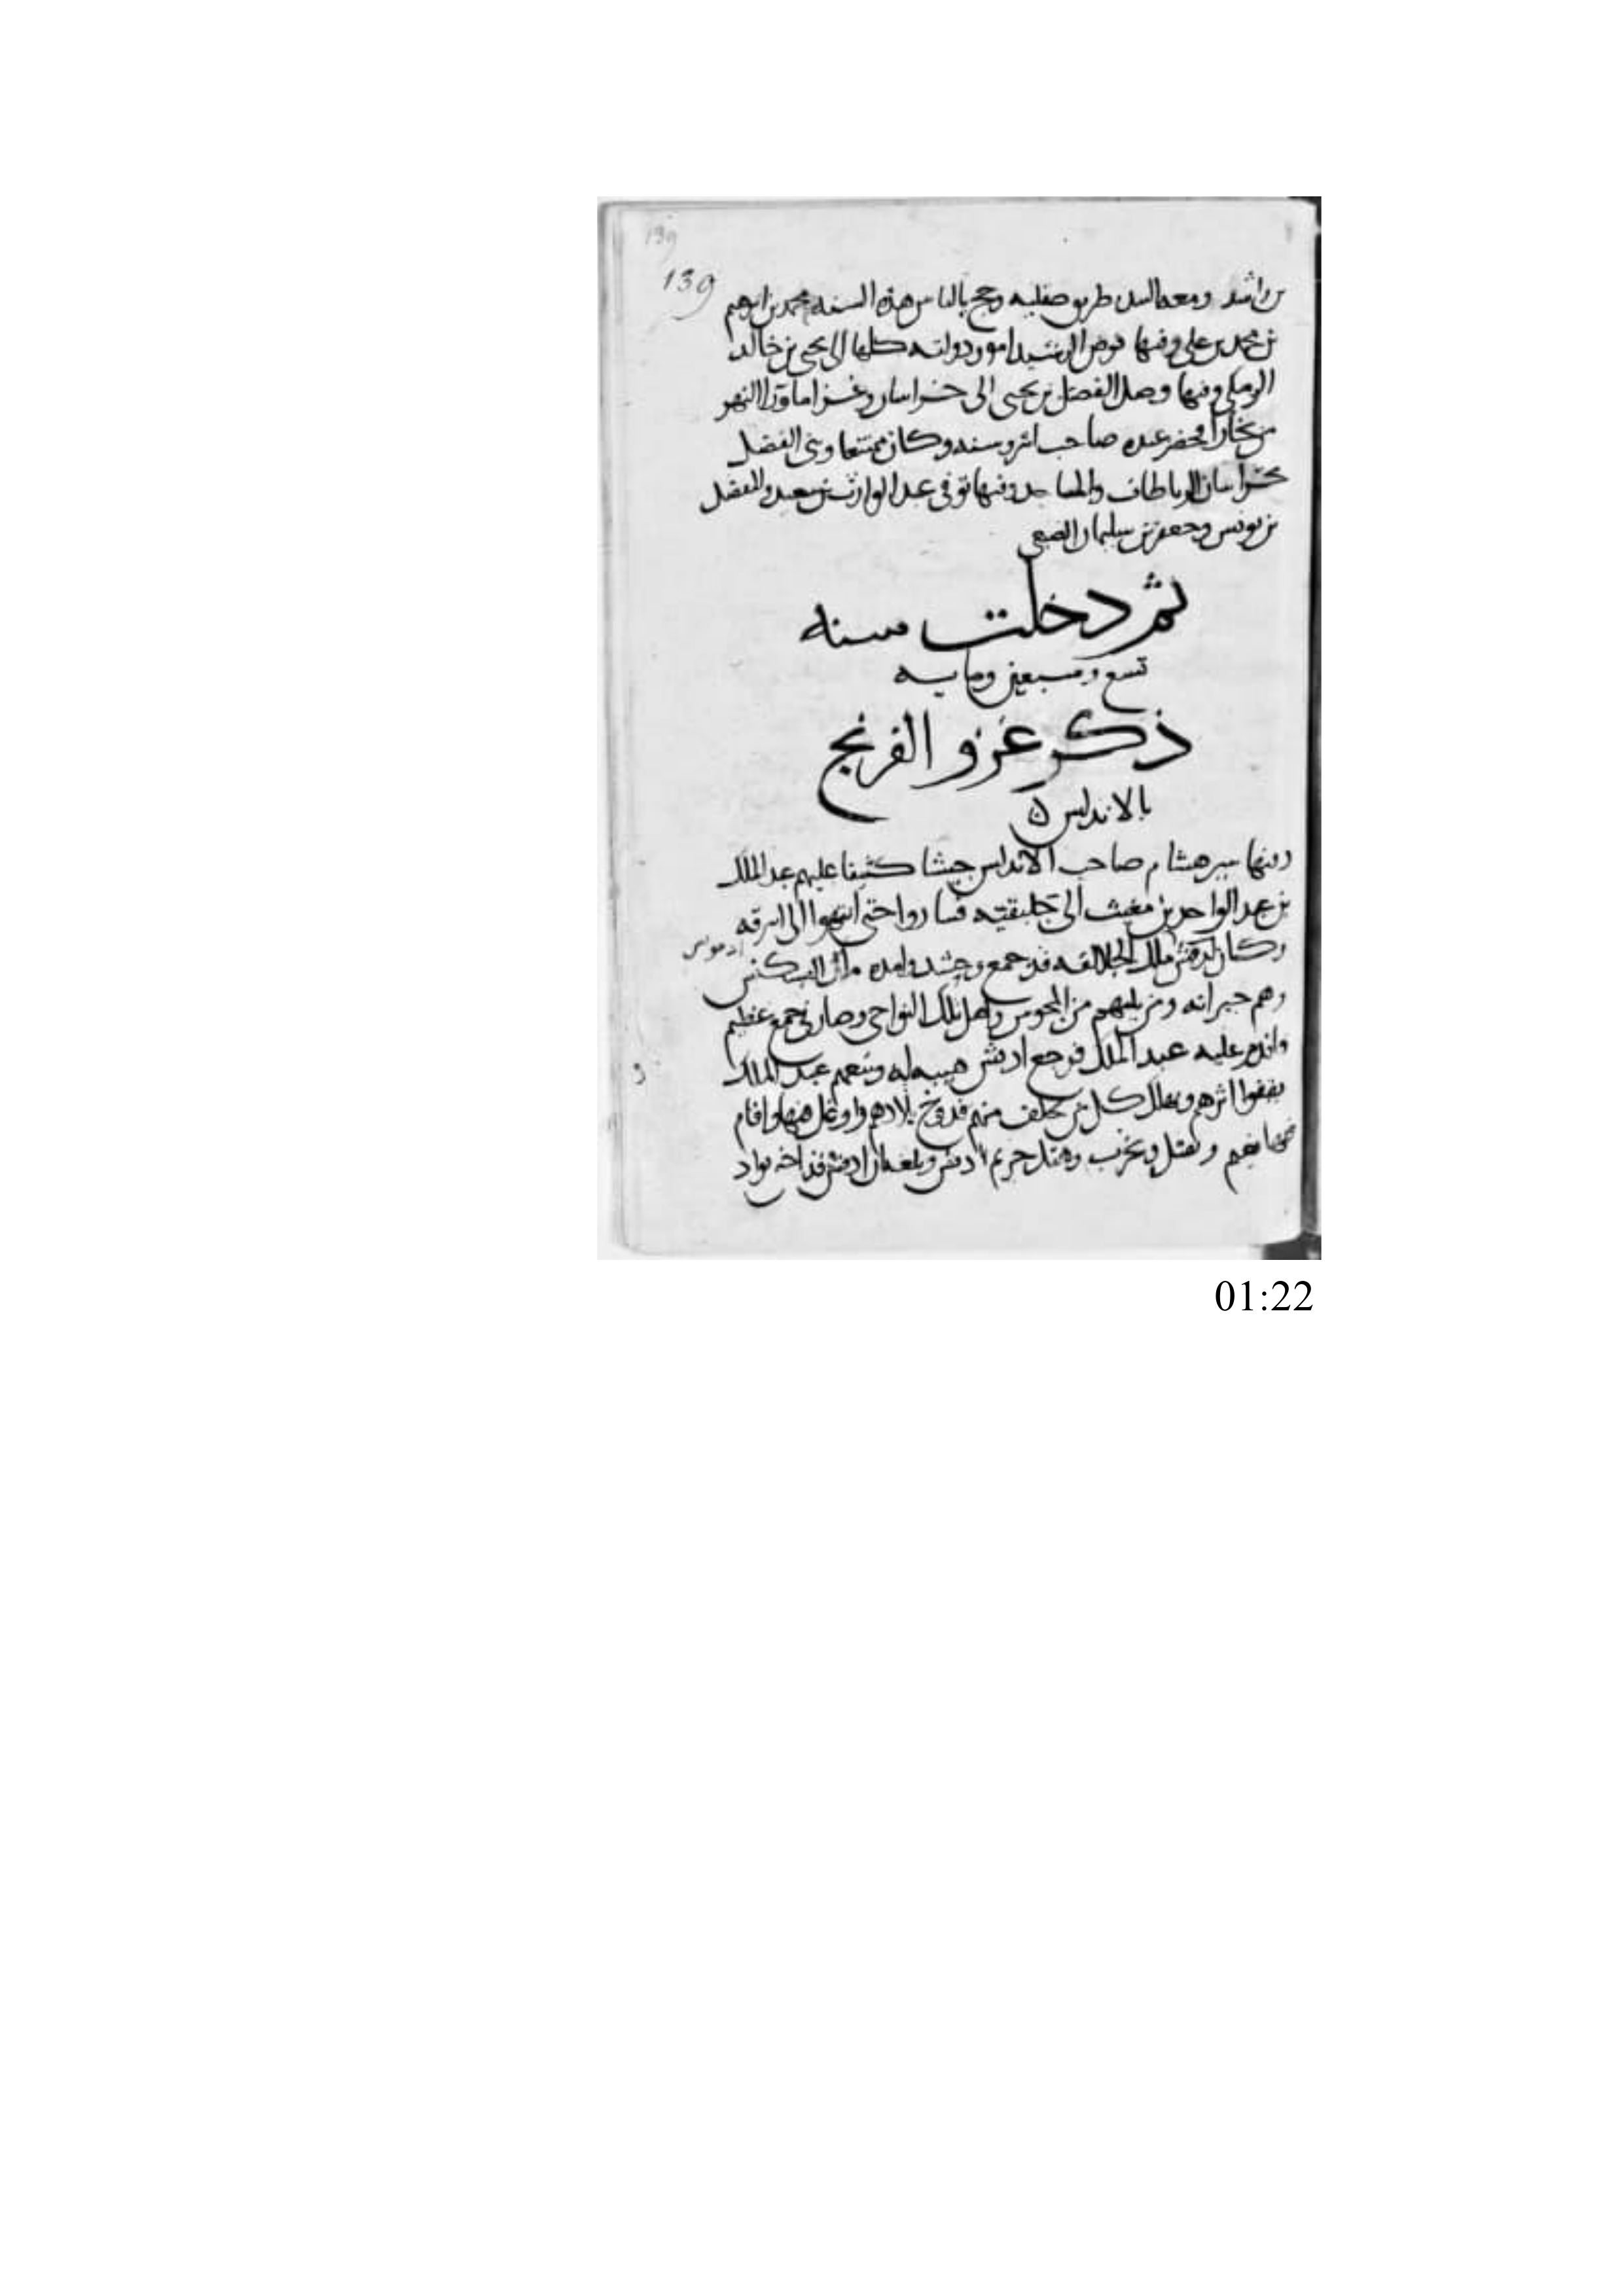 139
139
بن راشد ومعه السد طريق صقليه وحج بالناس هذه السنه محمد بن ابرهيم
بن محمد بن علي وفيها فوض الرشيد امور دولته كلها الى يحيى بن خالد
البرمكي وفيها وصل الفضل بن يحيى الى خراسان وغزا ماورا النهر
من بخارا فحضر عنده صاحب اشروسنه وكان ممتنعا وبنى الفضل
بخراسان الرباطات والمساجد وفيها توفي عبد الوارث بن سعيد والمفضل
بن يونس وجعفر بن سليمان الضبعي
ثم دخلت سنه
تسع وسبعين ومايه
ذكر غزو الفرنج
بالاندلس
وفيها سير هشام صاحب الاندلس جيشا كثيفا عليهم عبد الملك
بن عبد الواحد بن مغيث الى جليقيه فساروا حتى انتهوا الى استرقه
وكان ادفنش ملك الجلالقه قد جمع وحشد وامده ملك البشكنس
وهم جيرانه ومن يليهم من المجوس واهل تلك النواحي وصار في جمع عظيم
واقدم عليه عبد الملك فرجع ادفنش هيبه له وتبعهم عبد الملك
يقفوا اثرهم ويهلك كل من تخلف منهم فدوخ بلادهم واوغل فيها واقام
فيها يغنم ويقتل ويخرب وهتك حريم ادفنش وبلغه ان ادفنش قد اخذ بواد
01:22